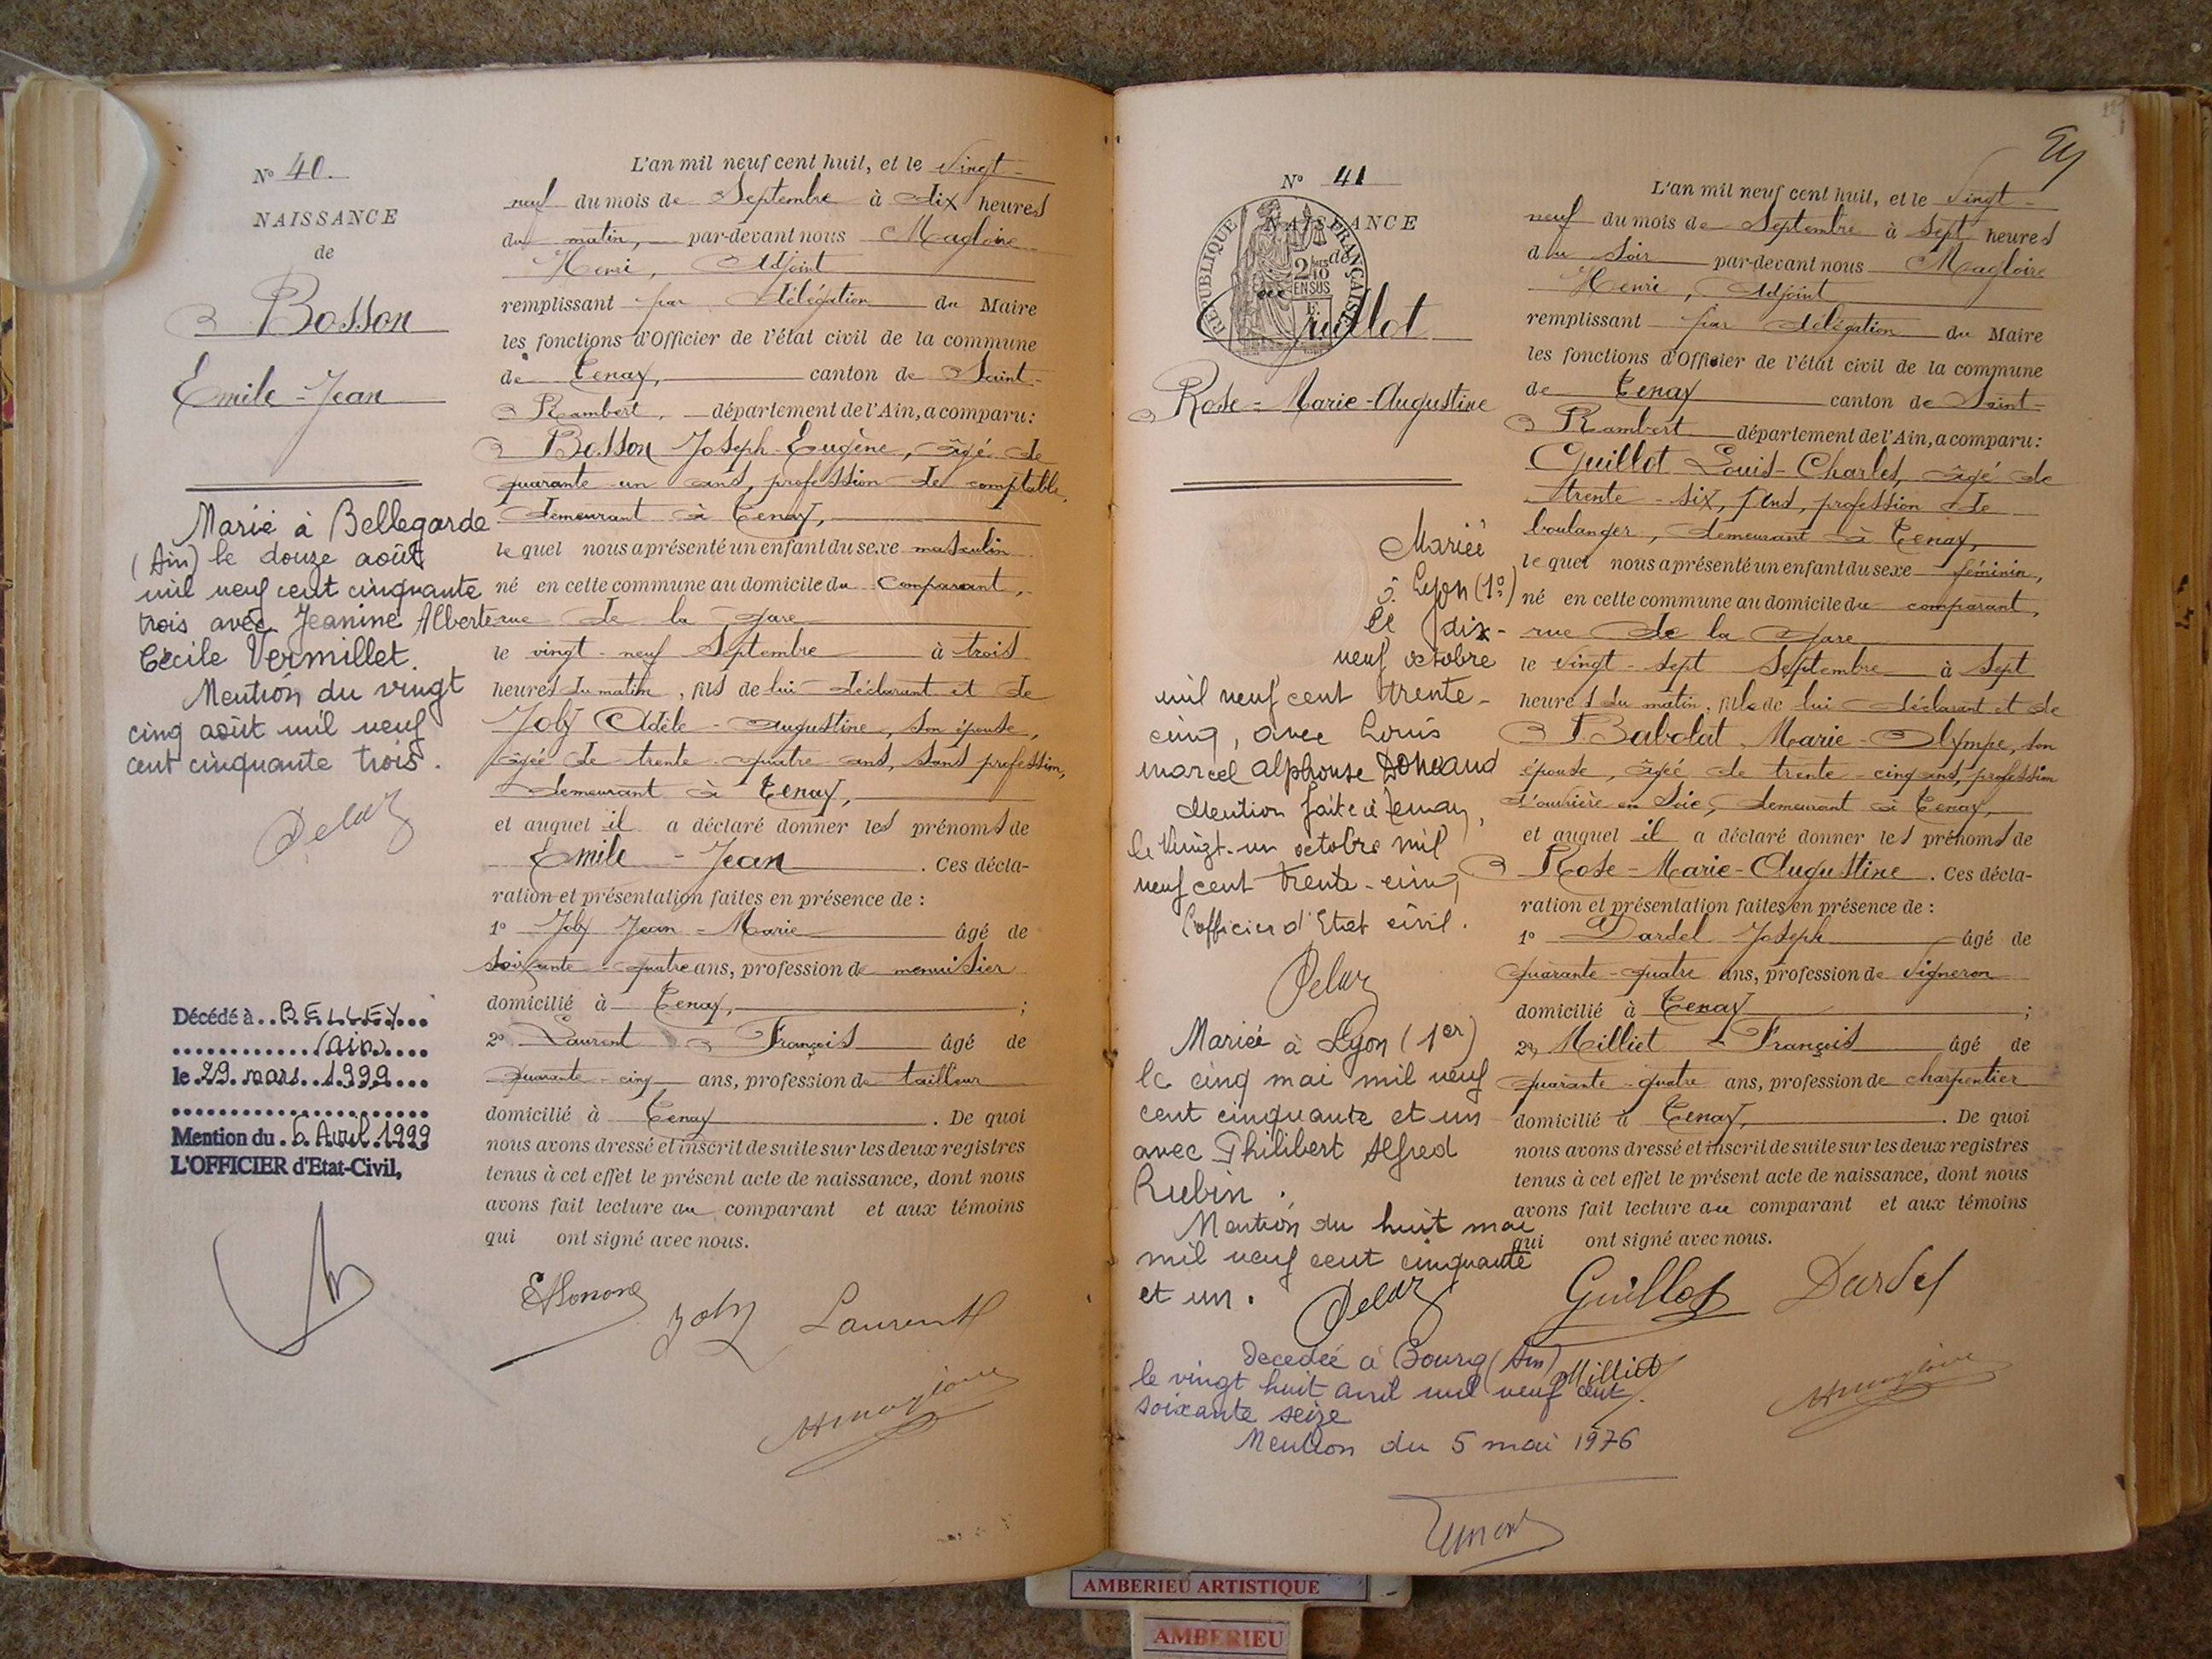 N° 40.
NAISSANCE
de
Bosson
Emile-Jean
Marié à Bellegarde
(Ain) le douze août
mil neuf cent cinquante
trois avec Jeanine Alberte
Cécile Vermillet.
Mention du vingt
cinq août mil neuf
cent cinquante trois.
Décédé à BELLEY
(ain)
le 29 mars 1999
Mention du 6 Avril 1999
L'OFFICIER d'Etat-Civil,
L'an mil neuf cent huit, et le vingt-
neuf du mois de Septembre à dix heures
du matin, par-devant nous Magloire
Henri, Adjoint
remplissant par délégation du Maire
les fonctions d'Officier de l'état civil de la commune
de Tenay, canton de Saint-
Rambert, département de l'Ain, a comparu:
Bosson Joseph-Eugène, âgé de
quarante-un ans, profession de comptable,
demeurant à Tenay,
lequel nous a présenté un enfant du sexe masculin
né en cette commune au domicile du comparant,
rue de la Gare
le vingt-neuf Septembre à trois
heures du matin, fils de lui déclarant et de
Joly Adèle-Augustine, son épouse,
âgée de trente-quatre ans, sans profession,
demeurant à Tenay,
et auquel il a déclaré donner les prénoms de
Emile-Jean. Ces décla-
ration et présentation faites en présence de :
1° Joly Jean-Marie âgé de
soixante-quatre ans, profession de menuisier
domicilié à Tenay, ;
2° Laurent François âgé de
quarante-cinq ans, profession de tailleur
domicilié à Tenay. De quoi
nous avons dressé et inscrit de suite sur les deux registres
tenus à cet effet le présent acte de naissance, dont nous
avons fait lecture au comparant et aux témoins
qui ont signé avec nous.
Joly Laurent
N° 41
NAISSANCE
de
RÉPUBLIQUE FRANÇAISE
2/10
EN SUS
Guillot
Rose-Marie-Augustine
Mariée
à Lyon (1°)
le dix-
neuf octobre
mil neuf cent trente-
cinq, avec Louis
Marcel Alphonse
Mention faite à Tenay,
le vingt-un octobre mil
neuf cent trente-cinq,
l'officier d'Etat civil.
Mariée à Lyon (1er)
le cinq mai mil neuf
cent cinquante et un
avec Philibert Alfred
Rubin.
Mention du huit mai
mil neuf cent cinquante
et un.
Décédée à Bourg (Ain)
le vingt huit avril mil neuf cent
soixante seize
Mention du 5 mai 1976
L'an mil neuf cent huit, et le vingt-
neuf du mois de Septembre à sept heures
du soir par-devant nous Magloire
Henri, Adjoint
remplissant par délégation du Maire
les fonctions d'Officier de l'état civil de la commune
de Tenay canton de Saint-
Rambert département de l'Ain, a comparu:
Guillot Louis-Charles, âgé de
trente-six, ans, profession de
boulanger, demeurant à Tenay,
lequel nous a présenté un enfant du sexe féminin,
né en cette commune au domicile du comparant,
rue de la Gare
le vingt-sept Septembre à sept
heures du matin, fille de lui déclarant et de
Babolat Marie-Olympe, son
épouse, âgée de trente-cinq ans, profession
d'ouvrière en soie, demeurant à Tenay,
et auquel il a déclaré donner les prénoms de
Rose-Marie-Augustine. Ces décla-
ration et présentation faites en présence de :
1° Dardel Joseph âgé de
quarante-quatre ans, profession de vigneron
domicilié à Tenay ;
2° Milliet François âgé de
quarante-quatre ans, profession de charpentier
domicilié à Tenay, . De quoi
nous avons dressé et inscrit de suite sur les deux registres
tenus à cet effet le présent acte de naissance, dont nous
avons fait lecture au comparant et aux témoins
qui ont signé avec nous.
Guillot Dardel
Milliet
AMBERIEU ARTISTIQUE
AMBERIEU